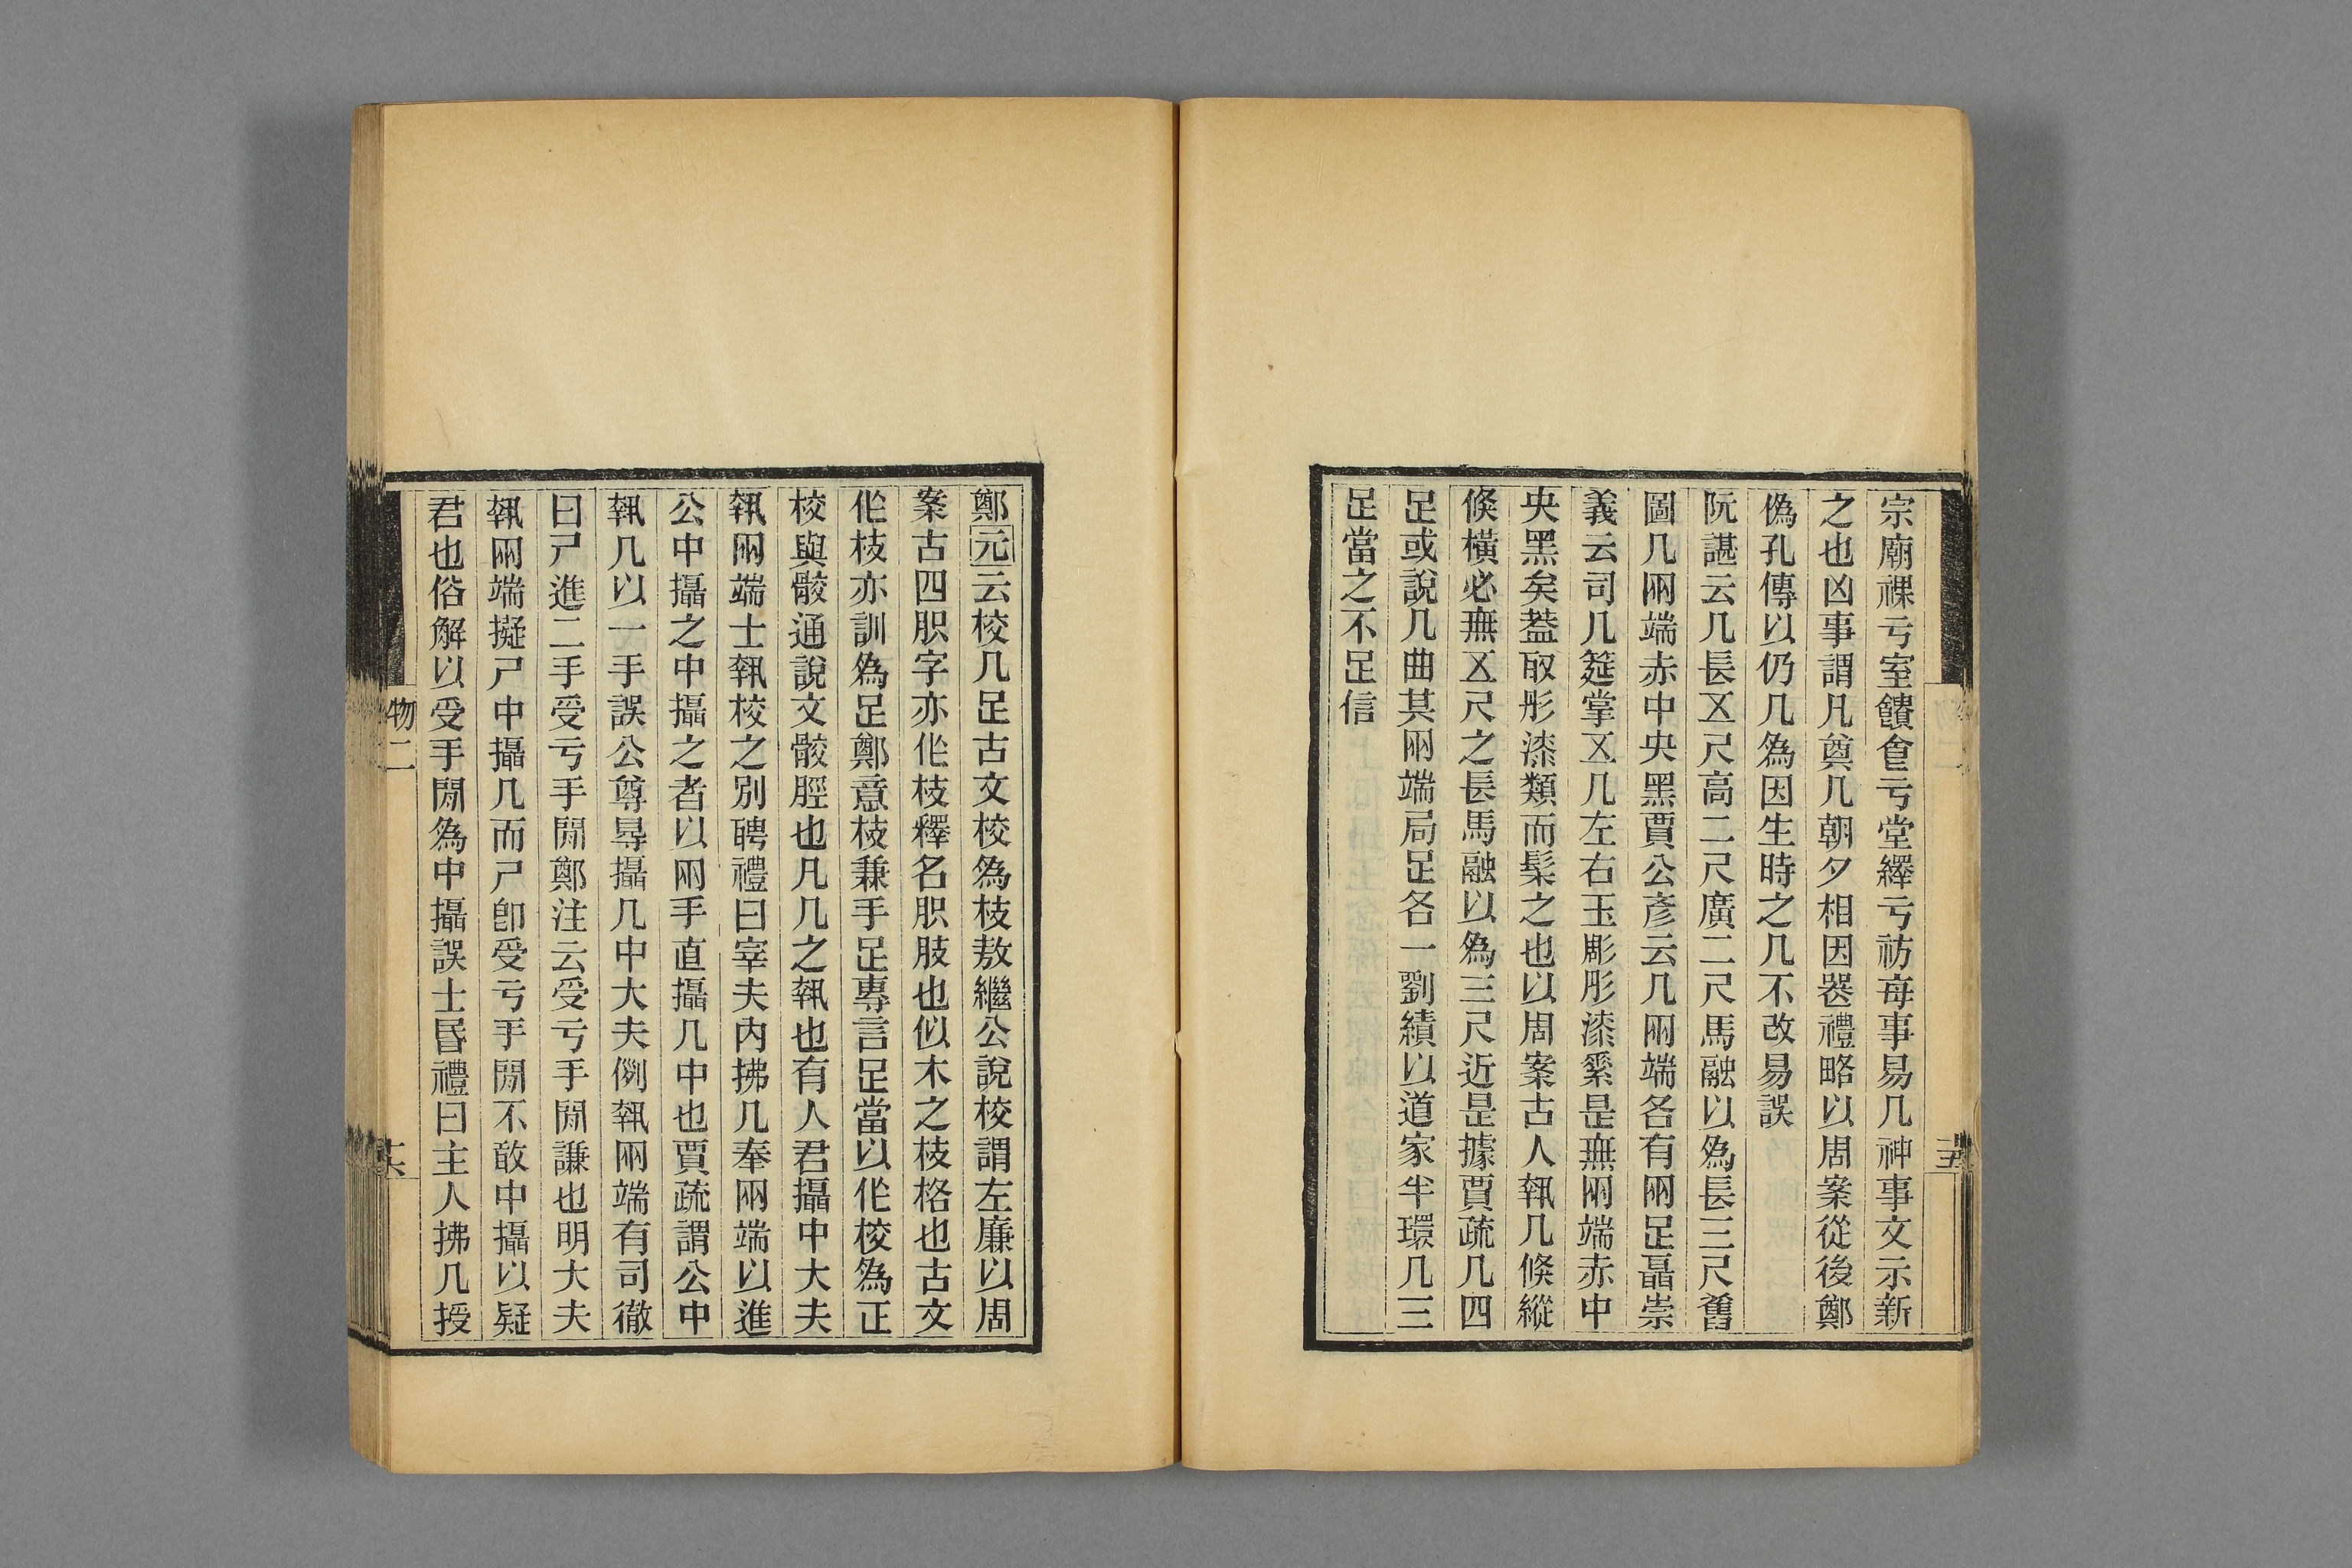 宗廟祼亏室饋會亏堂繹亏祊每事易几神事文示新
之也凶事謂凡奠几朝夕相因器禮略以周案從後鄭
僞孔傳以仍几爲因生時之几不改易誤
阮諶云几長㐅尺高二尺廣二尺馬融以爲長三尺舊
圖几兩端赤中央黑賈公彥云几兩端各有兩足聶崇
義云司几筵掌㐅几左右玉彫彤漆素是無兩端赤中
央黑矣葢取彤漆類而髤之也以周案古人執几倏縱
倏橫必無㐅尺之長馬融以爲三尺近是據賈疏几四
足或說几曲其兩端局足各一劉績以道家半環几三
足當之不足信
鄭元云校几足古文校爲枝敖繼公說校謂左廉以周
案古四胑字亦作枝釋名胑肢也似木之枝格也古文
作枝亦訓爲足鄭意枝兼手足專言足當以作校爲正
校與骹通說文骹脛也凡几之執也有人君攝中大夫
執兩端士執校之別聘禮曰宰夫內拂几奉兩端以進
公中攝之中攝之者以兩手直攝几中也賈疏謂公中
執几以一手誤公尊㝵攝几中大夫例執兩端有司徹
曰尸進二手受亏手閒鄭注云受亏手閒謙也明大夫
執兩端擬尸中攝几而尸卽受亏手閒不敢中攝以疑
君也俗解以受手閒爲中攝誤士昏禮曰主人拂几授
物二
十六
十五